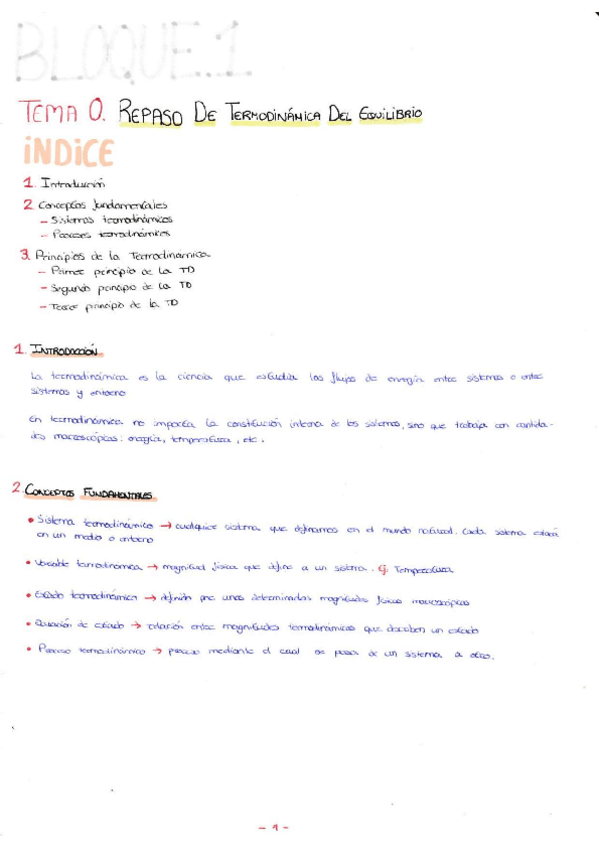 BLOQUE.1
TEMA 0. REPASO DE TERMODINÁMICA DEL EQUILIBRIO
ÍNDICE
1. Introducción
2. Conceptos fundamentales
- Sistemas termodinámicos
- Procesos termodinámicos
3. Principios de la Termodinámica
- Primer principio de la TD
- Segundo principio de la TD
- Tercer principio de la TD
1. INTRODUCCIÓN
La termodinámica es la ciencia que estudia los flujos de energía entre sistemas o entre
sistemas y entorno
En termodinámica no importa la constitución interna de los sistemas, sino que trabaja con cantida-
des macroscópicas: energía, temperatura, etc.
2. CONCEPTOS FUNDAMENTALES
• Sistema termodinámico → cualquier sistema que definamos en el mundo natural. Cada sistema estará
en un medio o entorno
• Variable termodinámica → magnitud física que define a un sistema. Ej: Temperatura
• Estado termodinámico → definido por unas determinadas magnitudes físicas macroscópicas
• Ecuación de estado → relación entre magnitudes termodinámicas que describen un estado
• Proceso termodinámico → proceso mediante el cual se pasa de un sistema a otro.
- 1 -